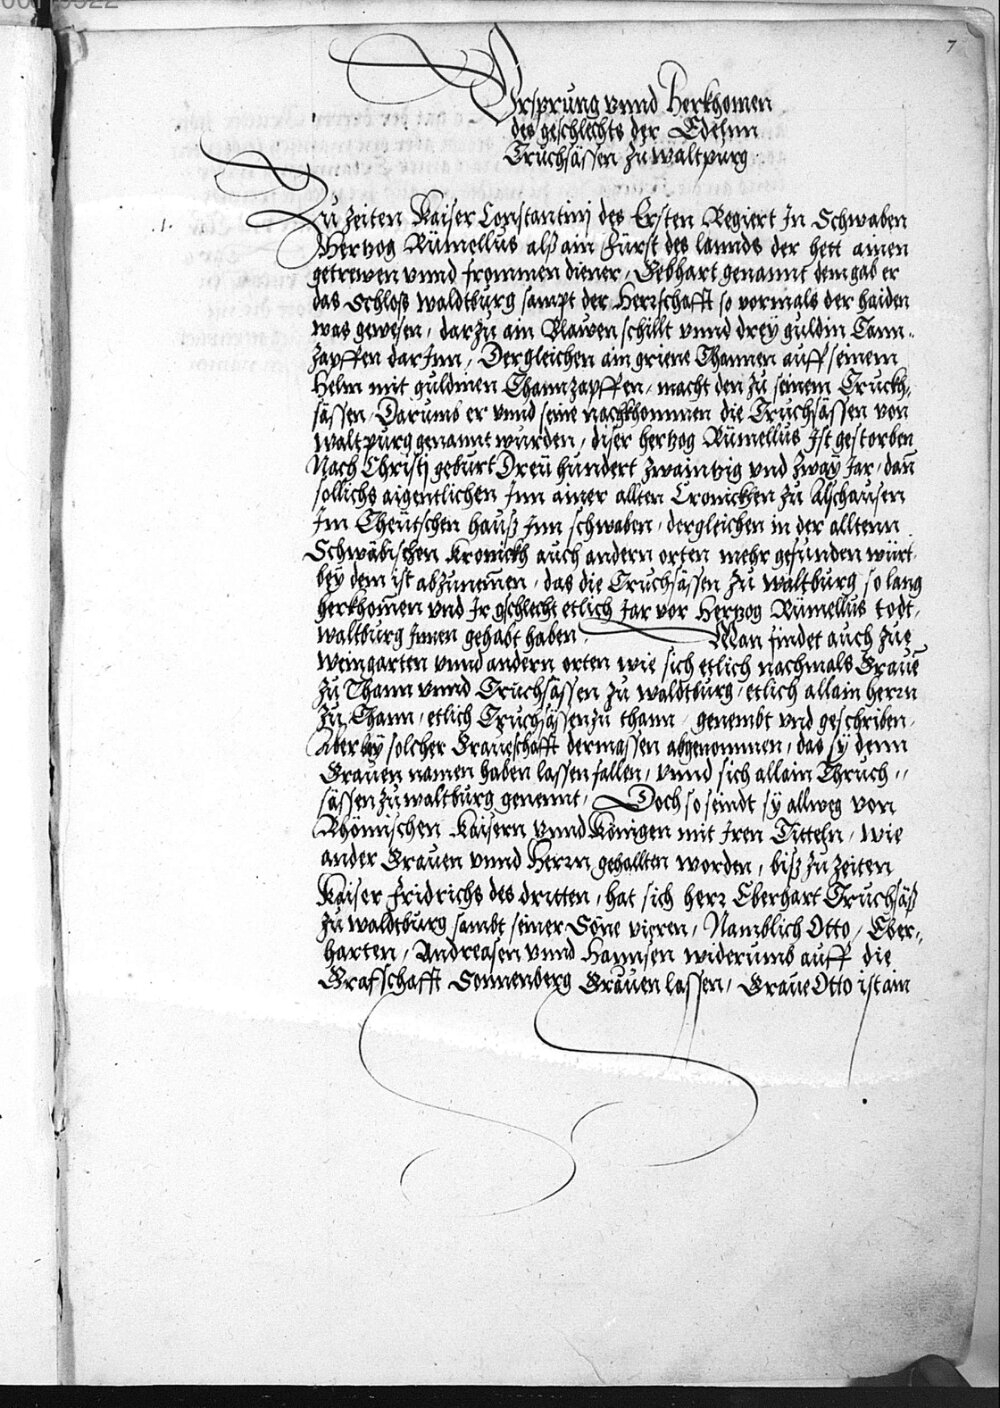 7
Vrsprung vnnd Herkhomen
des geschlechts der Edelnn
Truchsässen zu waltpurg
.1. Zu Zeiten Kaiser Constantinj des Ersten Regiert In Schwaben
Hertzog Rümellus alß ain Fürst des lannds der hett ainen
getrewen vnnd frommen diener, Gebhart genannt dem gab er
das Schloss waldtburg sampt der Herrschafft so vormals der haiden
was gewesen, darzu ain Blawen schillt vnnd drey guldin Tann-
zapffen dar Inn, Dergleichen ain griene Thannen auff seinem
Helm mit guldinen Thannzapffen, macht den zu seinem Truckh-
sässen, Darumb er vnnd seine nachkhommen die Truchsässen von
waltpurg genannt wurden, diser hertzog Rümellus Ist gestorben
Nach Christj geburt Dreü hundert zwaintzig vnd zway Jar, dan̄
sollichs aigentlichen Inn ainer allten Cronickhen zu Alschausen
Im Theütschen hauß Inn schwaben, dergleichen in der alltenn
Schwäbischen Kronickh auch andern orten mehr gefunden würt
bey dem ist abzunem̄en, das die Truchsässen zu waltburg so lang
herkhom̄en vnd Ir gschlecht etlich Jar vor Hertzog Rümellus todt,
waltburg Innen gehabt haben. Man findet auch zue
weingarten vnnd andern orten wie sich etlich nachmals Graue
zu Thann vnnd Truchsässen zu waldtburg, etlich allain herrn
zu Thann, etlich Truchsässen zu thann, genembt vnd geschriben,
Aber by solcher Graueschafft dermassen abgenommen, das sy denn
Grauen namen haben lassen fallen, vnnd sich allain Thruch-
sässen zu waltburg genennt, Doch so seindt sy allweg von
Rhömischen Kaisern vnnd Königen mit Iren Titteln, wie
ander Grauen vnnd Herrn gehallten worden, biß zu Zeiten
Kaiser Fridrichs des dritten, hat sich herr Eberhart Truchsäß
zu waldtburg sambt seiner Söne vieren, Namblich Otto, Eber-
harten, Andreasen vnnd Hannsen widerumb auff die
Grafschafft Sonnenberg Grauen lassen, Graue Otto ist ain